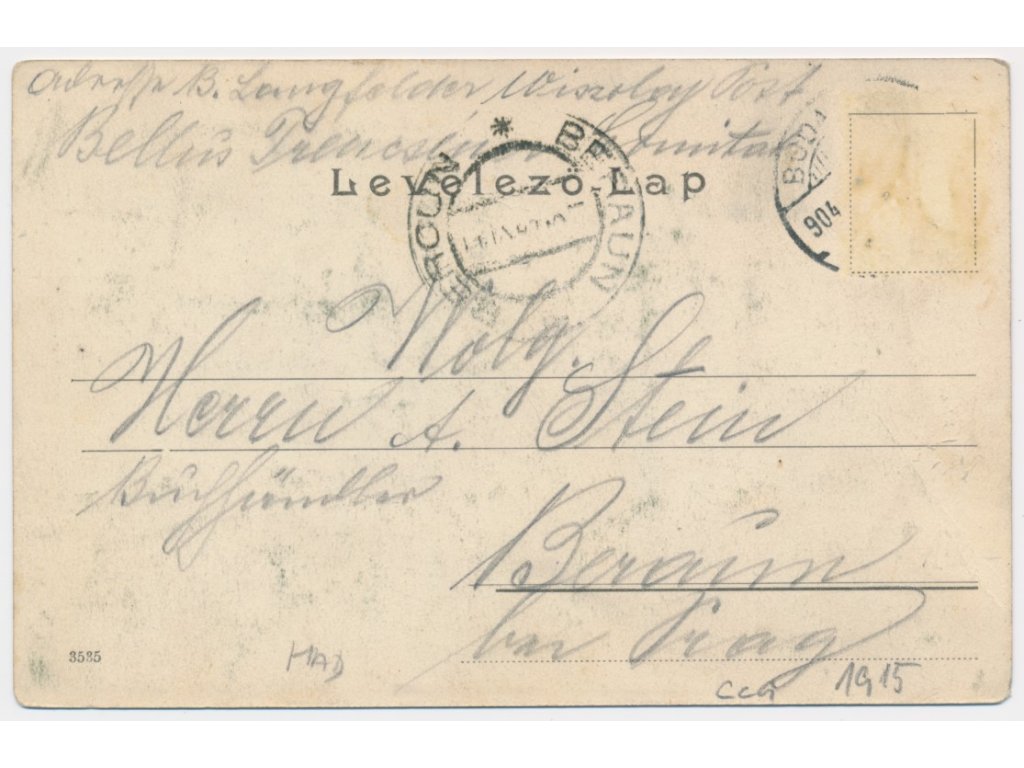 Adresse B. Langfelder Viszolay Post
Bellus Trencsiner Comitat
Levelező Lap
BEROUN * BERAUN
BUDA
904
Wolg.
Herrn A. Stein
Buchhändler
Beraun
bei Prag
3535
1915